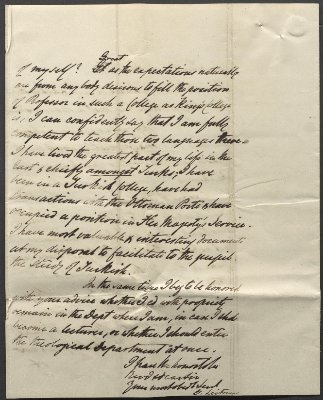 of myself? Great as the expectations naturally
are from anybody desirous to fill the position
of Professor in such a College as Kings College
is. I can confidently say that I am fully
competent to teach those two languages
I have lived the greatest part of my life in the
East & chiefly amongst Turks, I have
been in a Turkish College, have had
transactions with the Ottoman Porte & have
occupied a position in Her Majesty's Service.
I have most valuable & interesting documents
at my disposal to facilitate to the pupils
the study of Turkish.
In the same time I beg to be honored
with your advice whether I should with propriety
remain in the Dept where I am, in case I shd
become a lecturer, or whether I should enter
the theological department at once.
I have the honor to be
Revd
Your most obedt Servt